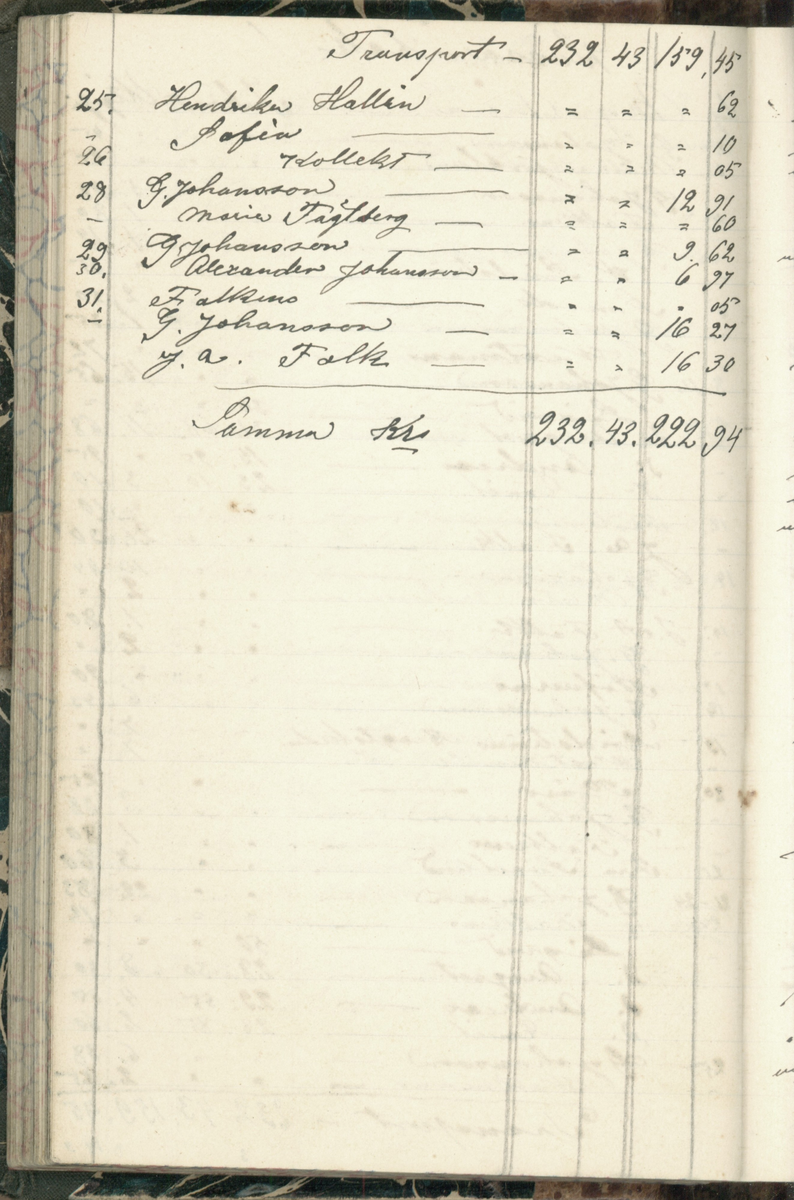 Transport - 232 43 159,45
25. Hendrika Hallin — " " " 62
" Sofia — " " " 10
26 Kollekt — " " " 05
28 G. Johansson — " " 12 91
— Maria Täglberg — " " " 60
29 G Johansson — " " 9. 62
30. Alexander Johansson — " " 6 97
31. Falkens — " " " 05
— G. Johansson — " " 16 27
J. A. Falk — " " 16 30
Summa Krs 232. 43. 222,94